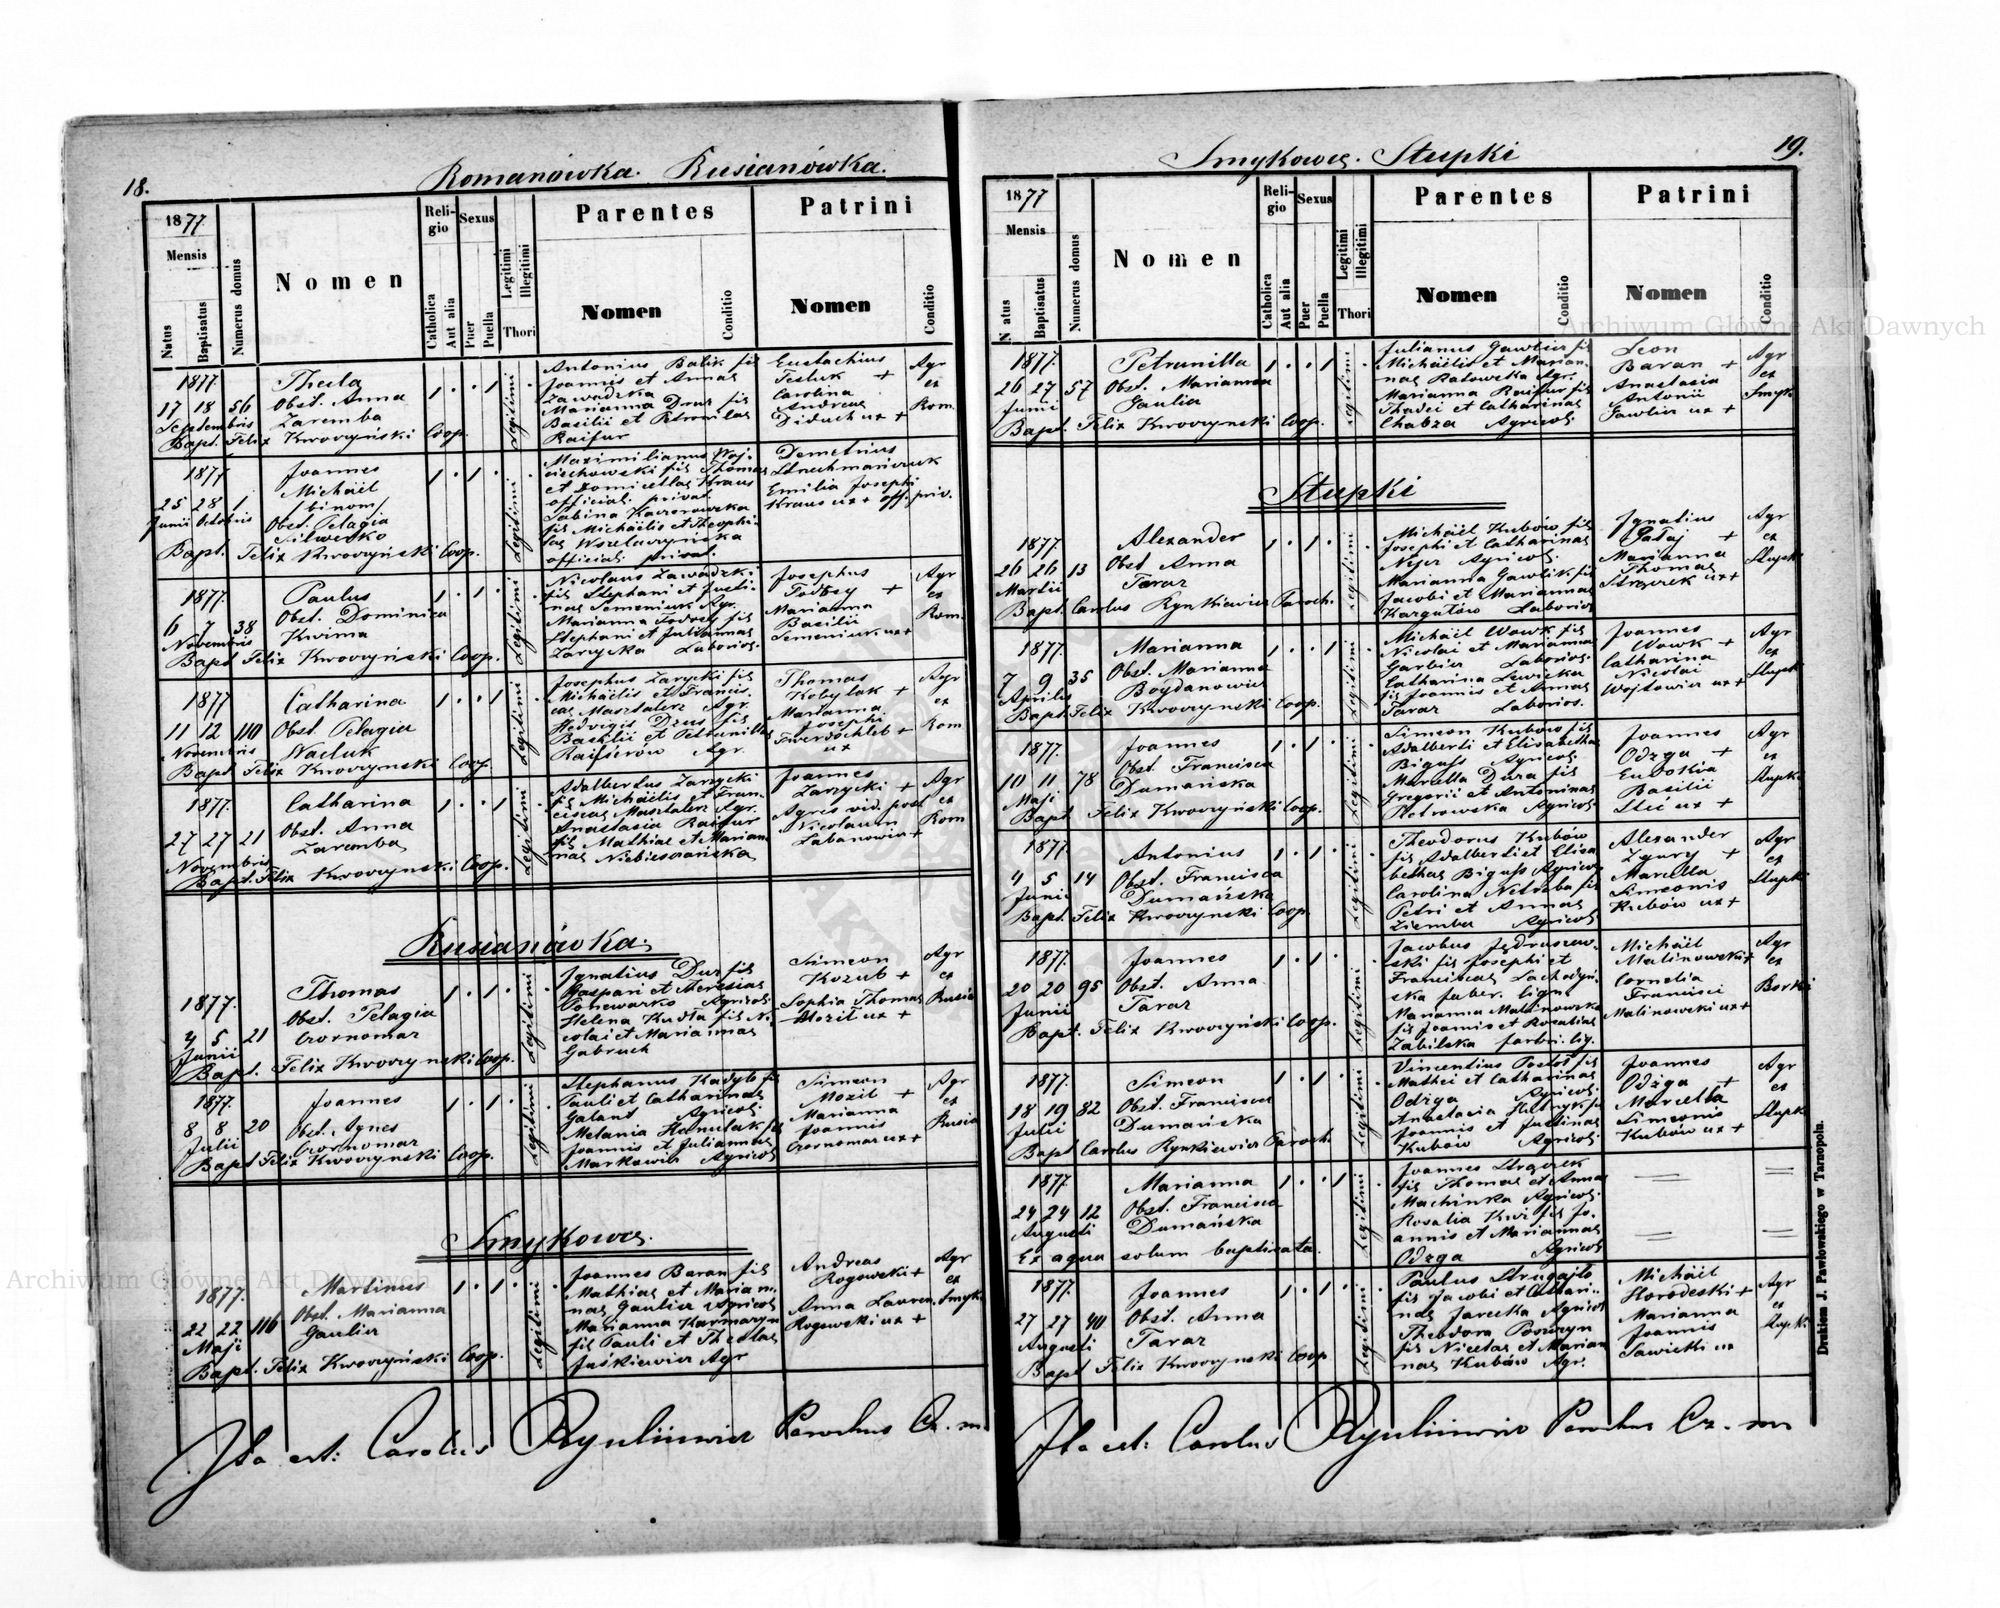 18.
Romanówka. Rusianówka.
1877
Mensis
Natus
Baptisatus
Numerus domus
Nomen
Religio
Catholica
Aut alia
Sexus
Puer
Puella
Legitimi
Illegitimi
Thori
Parentes
Nomen
Conditio
Patrini
Nomen
Conditio
1877
17 18 56
Septembris
Thecla
Obst. Anna
Zaremba
Bapt. Felix Kwoczyński Coop.
1 . . 1 .
Legitimi
Antonius Balik fil
Joannis et Annae
Zawadzka
Marianna Duz fil
Basilii et Petronilae
Raifur
Eustachius
Tesluk +
Carolina
Andreae
Diduch ux +
Agr
ex
Rom.
1877
25 28 1
Junii Octobris
Joannes
Michäel
/binom/
Obst. Pelagia
Bapt. Felix Kwoczyński Coop.
1 . 1 . .
Legitimi
Maximilianus Woj-
ciechowski fil Thomae
et Domicellae Kraus
official. privat.
Sabina
fil Michäelis et Theophi-
lae
official. privat.
Demetrius
Emilia Josephi
Kraus ux + off. priv.
1877.
6 7 38
Novembris
Paulus
Obst. Dominica
Kwima
Bapt Felix Kwoczyński Coop.
1 . 1 . .
Legitimi
Nicolaus Zawadzki
fil Stephani et Justi-
nae Semeniuk Agr.
Marianna
Stephani et Juliannae
Zarycka Laborios.
Josephus
+
Marianna
Basilii
Semeniuk ux +
Agr
ex
Rom.
1877
11 12 110
Novembris
Catharina
Obst. Pelagia
Naciuk
Bapt Felix Kwoczynski Coop.
1 . . 1 .
Legitimi
Josephus Zarycki fil
Michäelis et Francis-
cae Masztalerz Agr.
Hedvigis Duz fil
Basilii et Petrunillae
Raifurów Agr.
Thomas
Kobylak +
Marianna
Josephi
ux
Agr
ex
Rom
1877.
27 27 21
Novembris
Catharina
Obst. Anna
Zaremba
Bapt. Felix Kwoczynski Coop.
1 . . 1 .
Legitimi
Adalbertus Zarzycki
fil Michäelis et Fran-
ciscae Masztalerz Agr.
Anastasia Raifur
fil Mathiae et Marian-
nae
Joannes
Zarzycki +
Agnes vid. post
Nicolaum
Labanowicz +
Agr
ex
Rom
Rusianówka.
1877.
4 5 21
Junii
Thomas
Obst. Pelagia
Czornomaz
Bapt. Felix Kwoczynski Coop.
1 . 1 . .
Legitimi
Ignatius Duz fil
Gaspari et Theresiae
Agricol.
Helena Kudla fil Ni-
colai et Mariannae
Gabruch
Simeon
Kozub +
Sophia Thomae
Mozil ux +
Agr
ex
Rusia
1877.
8 8 20
Julii
Joannes
Obst. Agnes
Czornomaz
Bapt Felix Kwoczynski Coop.
1 . 1 . .
Legitimi
Stephanus Kadyło fil
Pauli et Catharinae
Galant Agricol.
Melania Hanulak fil
Joannis et Juliannae
Markowicz Agricol.
Simeon
Mozil +
Marianna
Joannis
Czornomaz ux +
Agr
ex
Rusia
Smykowce.
1877.
22 22 116
Maji
Martinus
Obst. Marianna
Gaulicz
Bapt. Felix Kwoczyński Coop.
1 . 1 . .
Legitimi
Joannes Baran fil
Mathiae et Marian-
nae Gaulicz Agricol.
Marianna Karmazyn
fil Pauli et Theclae
Juśkiewicz Agr
Andreas
Rogowski +
Anna Lauren.
Rogowski ux +
Agr
ex
Smyk.
Ita est: Carolus Parochus
19.
Smykowce. Stupki
1877
Mensis
Natus
Baptisatus
Numerus domus
Nomen
Religio
Catholica
Aut alia
Sexus
Puer
Puella
Legitimi
Illegitimi
Thori
Parentes
Nomen
Conditio
Patrini
Nomen
Conditio
1877.
26 27 57
Junii
Petrunilla
Obst. Marianna
Gaulicz
Bapt. Felix Kwoczynski Coop.
1 . . 1 .
Legitimi
Julianus Gawlicz fil
Michäelis et Marian-
nae Ratowska Agr.
Marianna Raifur fil
Thadei et Catharinae
Chabza Agricol.
Leon
Baran +
Anastasia
Antonii
Gawlicz ux +
Agr
ex
Smyk.
Stupki
1877.
26 26 13
Martii
Alexander
Obst Anna
Taraz
Bapt. Carolus Rynkiewicz Paroch.
1 . 1 . .
Legitimi
Michäel Kubów fil
Josephi et Catharinae
Agricol.
Marianna Gawlik fil
Jacobi et Mariannae
Laborios
Ignatius
Pataj +
Marianna
Thomae
ux +
Agr
ex
Stupki
1877.
7 9 35
Aprilis
Marianna
Obst. Marianna
Bogdanowicz
Bapt. Felix Kwoczynski Coop.
1 . . 1 .
Legitimi
Michäel Wowk fil
Nicolai et Marianna
Garbicz Laborios.
Catharina Lewicka
fil Joannis et Annae
Taraz Laborios.
Joannes
Wowk +
Catharina
Nicolai
Wojtowicz ux +
Agr
ex
Stupki
1877.
10 11 78
Maji
Joannes
Obst. Francisca
Dumańska
Bapt. Felix Kwoczyński Coop.
1 . 1 . .
Legitimi
Simeon Kubów fil
Adalberti et Elisabethae
Agricol.
Marcella Dura fil
Gregorii et Antoninae
Piotrowska Agricol.
Joannes
Odzga +
Eudokia
Basilii
ux +
Agr
ex
Stupki
1877.
4 5 14
Junii
Antonius
Obst. Francisca
Dumańska
Bapt. Felix Kwoczynski Coop.
1 . 1 . .
Legitimi
Theodorus Kubów
fil Adalberti et Elisa
bethae Agricol.
Carolina Netreba fil
Petri et Annae
Ziemba Agricol
Alexander
Zgury +
Marcella
Simeonis
Kubów ux +
Agr
ex
Stupki
1877.
20 20 95
Junii
Joannes
Obst. Anna
Taraz
Bapt. Felix Kwoczyński Coop.
1 . 1 . .
Legitimi
Jacobus Jędruszew-
ski fil Josephi et
Franciscae
ska faber. lign.
Marianna Malinowska
fil Joannis et Rosaliae
Zabilska
Michäel
Malinowski +
Cornelia
Francisci
Malinowski ux +
Agr
ex
Borki
1877.
18 19 82
Julii
Simeon
Obst. Francisca
Dumańska
Bapt Carolus Rynkiewicz Paroch.
1 . 1 . .
Legitimi
Vincentius
Mathei et Catharinae
Odzga Agricol.
Anastasia
Joannis et Justinae
Kubów Agricol.
Joannes
Odzga +
Marcella
Simeonis
Kubów ux +
Agr
ex
Stupki
1877.
24 24 12
Augusti
Marianna
Obst. Francisca
Dumańska
Ex aqua solum baptisata.
1 . . 1 .
Legitimi
Joannes
fil Thomae et Anna
Machinka Agricol.
Rosalia fil Jo-
annis et Mariannae
Odzga Agricol
1877.
27 27 40
Augusti
Joannes
Obst. Anna
Taraz
Bapt Felix Kwoczynski Coop
1 . 1 . .
Legitimi
Paulus
fil Jacobi et Cathari-
nae Jarecka Agricol
Theodora
fil Nicetae et Marian
nae Kubów Agr.
Michäel
Horodeski +
Marianna
Joannis
Sawicki ux
Agr
ex
Stupki
Ita est: Carolus Parochus
Drukiem J. Pawłowskiego w Tarnopolu.
Archiwum Główne Akt Dawnych
Archiwum Główne Akt Dawnych